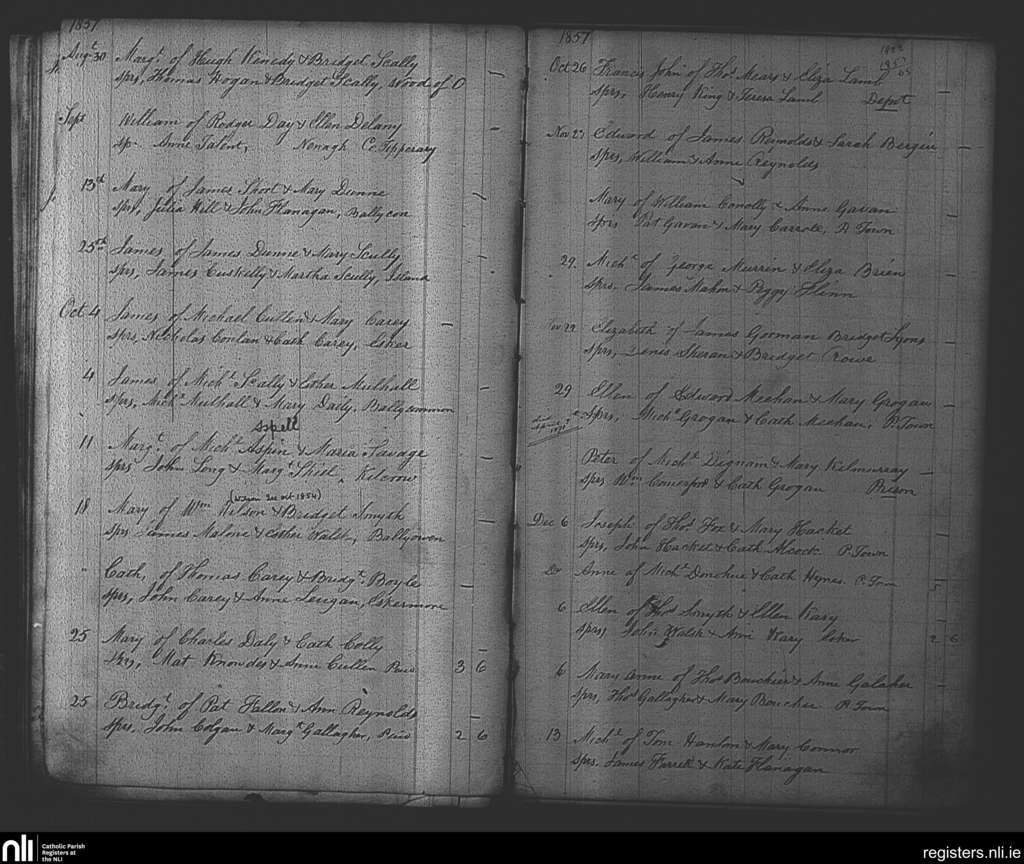 1857
Augt 30 Margt of Hugh Kenedy & Bridget Scally
sprs, Thomas Hogan & Bridget Scally, Wood of O
Sept William of Rodger Day & Ellen Delany
sp. Anne Talent, Nenagh Co. Tipperary
13th Mary of James Short & Mary Dunne
sprs, Julia Hill & John Flanagan, Ballycon
25th James of James Dunne & Mary Scully
sprs, James Cuskelly & Martha Scully, Island
Oct 4 James of Michael Cullen & Mary Carey
sprs, Nicholas Conlan & Cath Carey, Esker
4 James of Michl Scally & Esther Mulhall
sprs, Michl Mulhall & Mary Daily, Ballycommon
Spell
11 Margt of Michl Aspin & Maria Savage
sprs John Long & Margt Shiel, Kilcrow
(Wilson See oct 1854)
18 Mary of Wm Wilson & Bridget Smyth
sprs James Malone & Esther Walsh, Ballyowen
" Cath, of Thomas Carey & Bridgt Boyle
sprs, John Carey & Anne Leugan, Eskermore
25 Mary of Charles Daly & Cath Colly
Sprs, Mat Knowdes & Anne Cullen 3 6
25 Bridgt of Pat Fallen & Ann Reynolds
sprs, John Colgan & Margt Gallagher, 2 6
1857
1857
Oct 26 Francis John of Thos Mears & Eliza Lamb
sprs, Henry King & Teresa Lamb Depot
Nov 23 Edward of James Reynolds & Sarah Bergin
sprs, William & Anne Reynolds
Mary of William Conolly & Anne Gavan
sprs Pat Gavan & Mary Carroll, P. Town
29. Michl of George Murrin & Eliza Brien
sprs. James Mahn & Peggy Flinn
Nov 29 Elizabeth of James Gorman Bridget Lyons
sprs, Denis Sheran & Bridget Crowe
29 Ellen of Edward Meehan & Mary Grogan
sprs, Michl Grogan & Cath Meehan, P. Town
Peter of Michl Dignam & Mary Kilmurray
sprs Wm Comerford & Cath Grogan Prison
Dec 6 Joseph of Thos Fox & Mary Hacket
sprs, John Hacket & Cath Alcock P. Town
Do Anne of Michl Donohue & Cath Hynes. P. Town
6 Ellen of Thos Smyth & Ellen Kary
sprs John Walsh & Ann Kary Esker 2 6
6 Mary Anne of Thos Bouchier & Anne Galaher
sprs, Thos Gallagher & Mary Boucher P. Town
13 Michl of Tom Hanlon & Mary Connor
sprs. James Farrell & Kate Flanagan
nli
Catholic Parish
Registers at
the NLI
registers.nli.ie